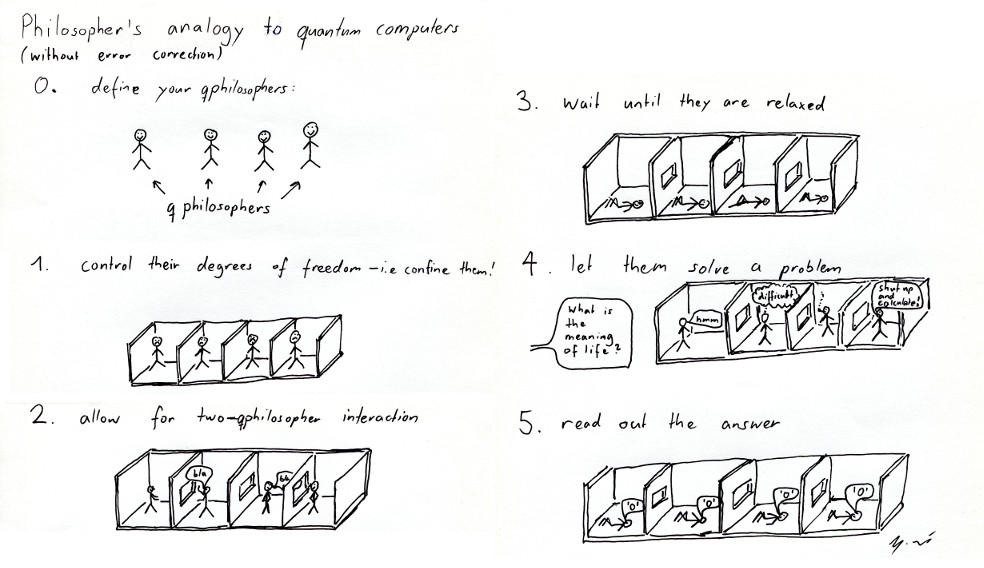 Philosopher's analogy to quantum computers
(without error correction)
0. define your qphilosophers:
q philosophers
1. control their degrees of freedom - i.e confine them!
2. allow for two-qphilosopher interaction
bla
3. wait until they are relaxed
4. let them solve a problem
What is
the
meaning
of life?
hmm
difficult
shut up
and
calculate!
5. read out the answer
'0'
'0'
'0'
'0'